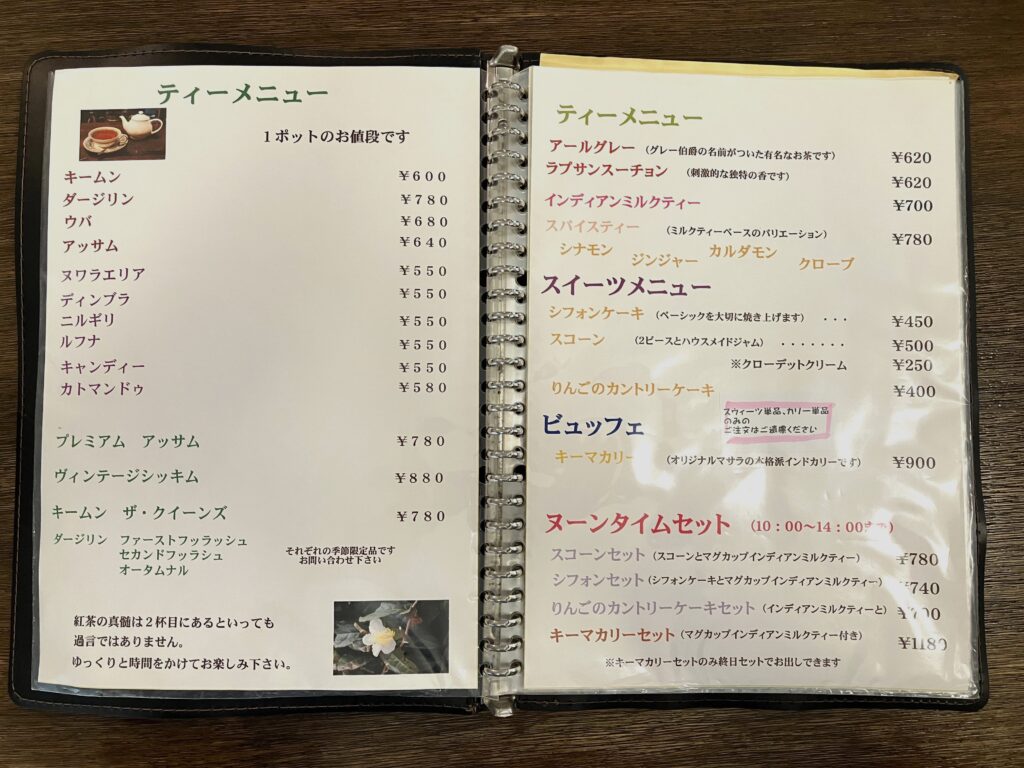 ティーメニュー
1ポットのお値段です
キームン ¥600
ダージリン ¥780
ウバ ¥680
アッサム ¥640
ヌワラエリア ¥550
ディンブラ ¥550
ニルギリ ¥550
ルフナ ¥550
キャンディー ¥550
カトマンドゥ ¥580
プレミアム アッサム ¥780
ヴィンテージシッキム ¥880
キームン ザ・クイーンズ ¥780
ダージリン ファーストフッラッシュ
セカンドフッラシュ
オータムナル
それぞれの季節限定品です
お問い合わせ下さい
紅茶の真髄は2杯目にあるといっても
過言ではありません。
ゆっくりと時間をかけてお楽しみ下さい。
ティーメニュー
アールグレー (グレー伯爵の名前がついた有名なお茶です) ¥620
ラプサンスーチョン (刺激的な独特の香です) ¥620
インディアンミルクティー ¥700
スパイスティー (ミルクティーベースのバリエーション) ¥780
シナモン ジンジャー カルダモン クローブ
スイーツメニュー
シフォンケーキ (ベーシックを大切に焼き上げます) ・・・ ¥450
スコーン (2ピースとハウスメイドジャム) ・・・・・・・ ¥500
※クローデットクリーム ¥250
りんごのカントリーケーキ ¥400
ビュッフェ
スウィーツ単品、カリー単品
のみの
ご注文はご遠慮ください
キーマカリー (オリジナルマサラの本格派インドカリーです) ¥900
ヌーンタイムセット (10:00〜14:00まで)
スコーンセット (スコーンとマグカップインディアンミルクティー) ¥780
シフォンセット (シフォンケーキとマグカップインディアンミルクティー) ¥740
りんごのカントリーケーキセット (インディアンミルクティーと)
キーマカリーセット (マグカップインディアンミルクティー付き) ¥1180
※キーマカリーセットのみ終日セットでお出しできます